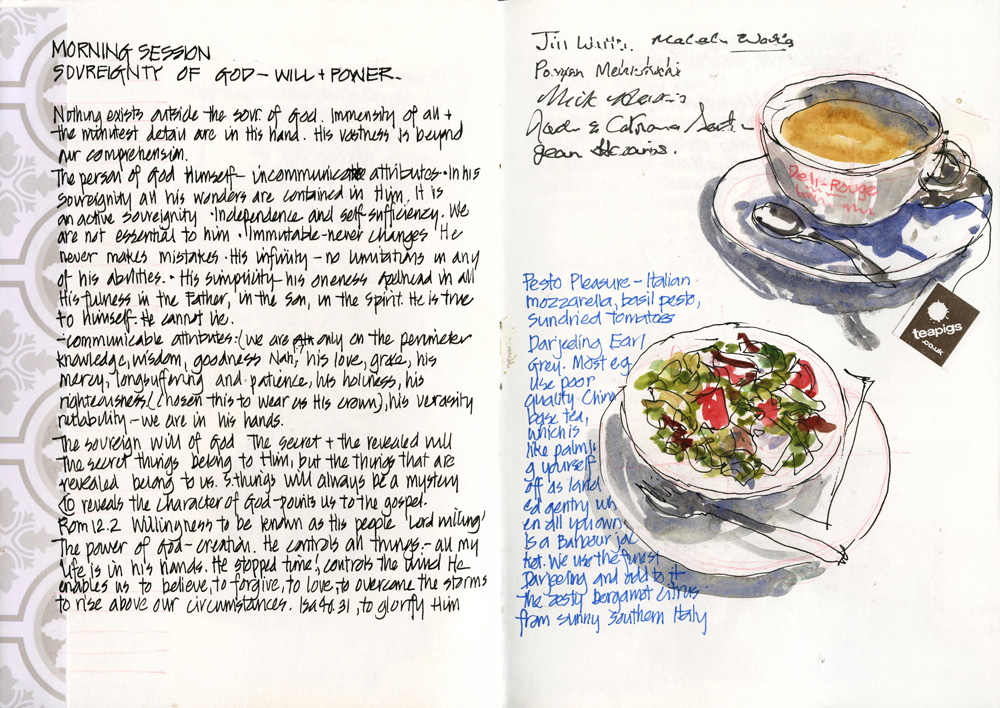 MORNING SESSION
SOVREIGNTY OF GOD - WILL + POWER.
Nothing exists outside the sovr. of God. Immensity of all +
the minutest detail are in His hand. His vastness is beyond
our comprehension.
The person of God Himself - incommunicable attributes • In his
sovreignity all his wonders are contained in Him. It is
an active sovreignity • Independence and self sufficiency. We
are not essential to him • Immutable - never changes He
never makes mistakes. • His infinity - no limitations in any
of his abilities. • His simplicity - his oneness Godhead in all
His fulness in the Father, in the Son, in the Spirit. He is true
to Himself - He cannot lie.
- communicable attributes: (we are only on the perimeter
knowledge, wisdom, goodness Nah; his love, grace, his
mercy, longsuffering and patience, his holiness, his
righteousness, (chosen this to wear as His crown), his verasity
reliability - we are in his hands.
The sovreign will of God The secret + the revealed will
The secret things belong to Him, but the things that are
revealed belong to us. S.things will always be a mystery
reveals the character of God - points us to the gospel.
Rom 12.2 Willingness to be known as His people 'Lord willing'
The power of God - creation. He controls all things. - all my
life is in his hands. He stopped time, controls the wind He
enables us to believe, to forgive, to love, to overcome the storms
to rise above our circumstances. Isa 40.31, to glorify Him
Jill
Mick
Jean
Deli-Rouge
teapigs
.co.uk
Pesto Pleasure - Italian
mozzarella, basil pesto,
sundried tomatoes
Darjeeling Earl
Grey. Most e.g.
use poor
quality China
base tea,
which is
like palmin
g yourself
off as land
ed gentry wh
en all you own
is a Barbour jac
ket. We use the finest
Darjeeling and add to it
the zesty bergamot citrus
from sunny southern Italy